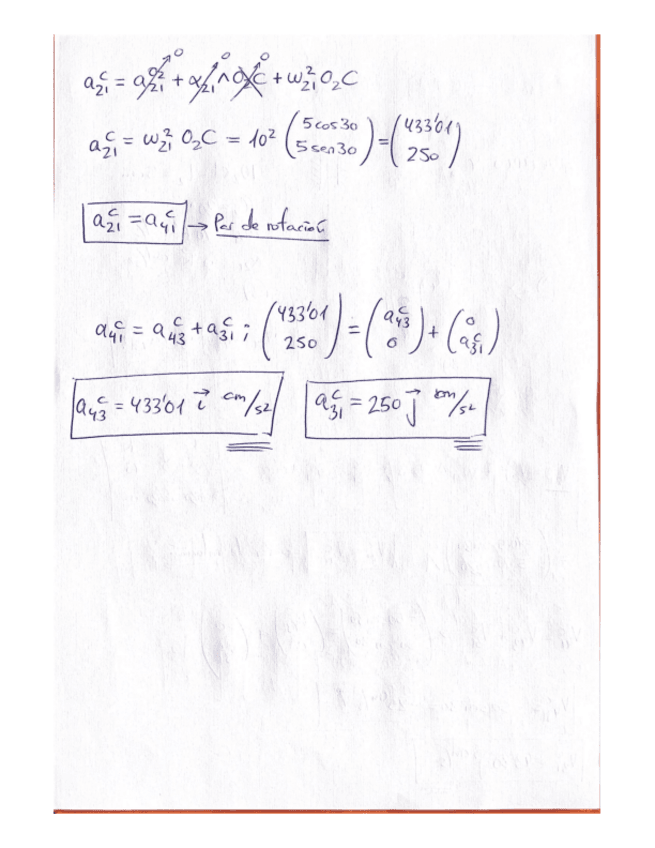 a₂₁ᶜ = a₂₁^O₂ + α₂₁ ∧ O₂C + ω₂₁² O₂C
0 0 0
a₂₁ᶜ = ω₂₁² O₂C = 10² (5 cos 30 / 5 sen 30) = (433'01 / 250)
a₂₁ᶜ = a₄₁ᶜ → Par de rotación
a₄₁ᶜ = a₄₃ᶜ + a₃₁ᶜ ; (433'01 / 250) = (a₄₃ᶜ / 0) + (0 / a₃₁ᶜ)
a₄₃ᶜ = 433'01 i⃗ cm/s² a₃₁ᶜ = 250 j⃗ cm/s²